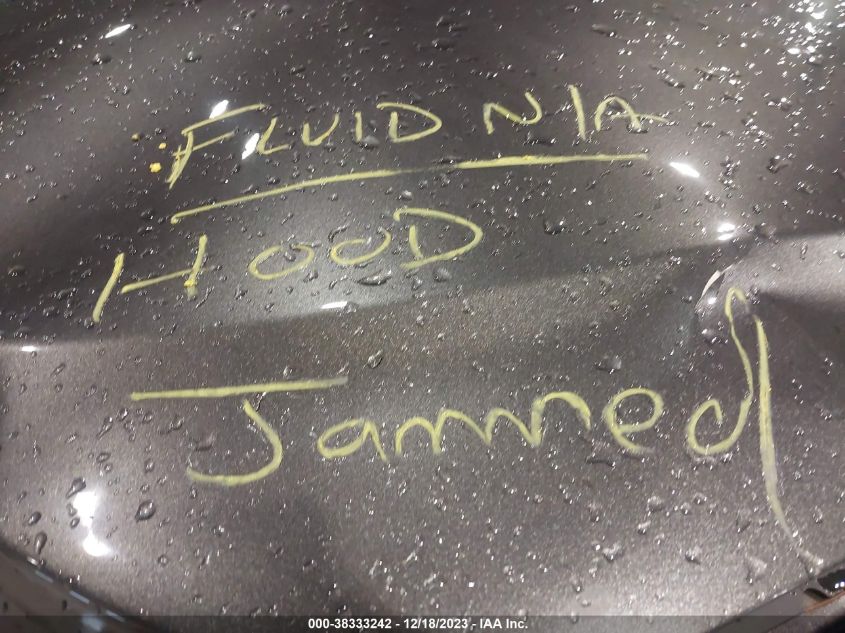 FLUID N/A
HOOD
Jammed
000-38333242 - 12/18/2023 - IAA Inc.